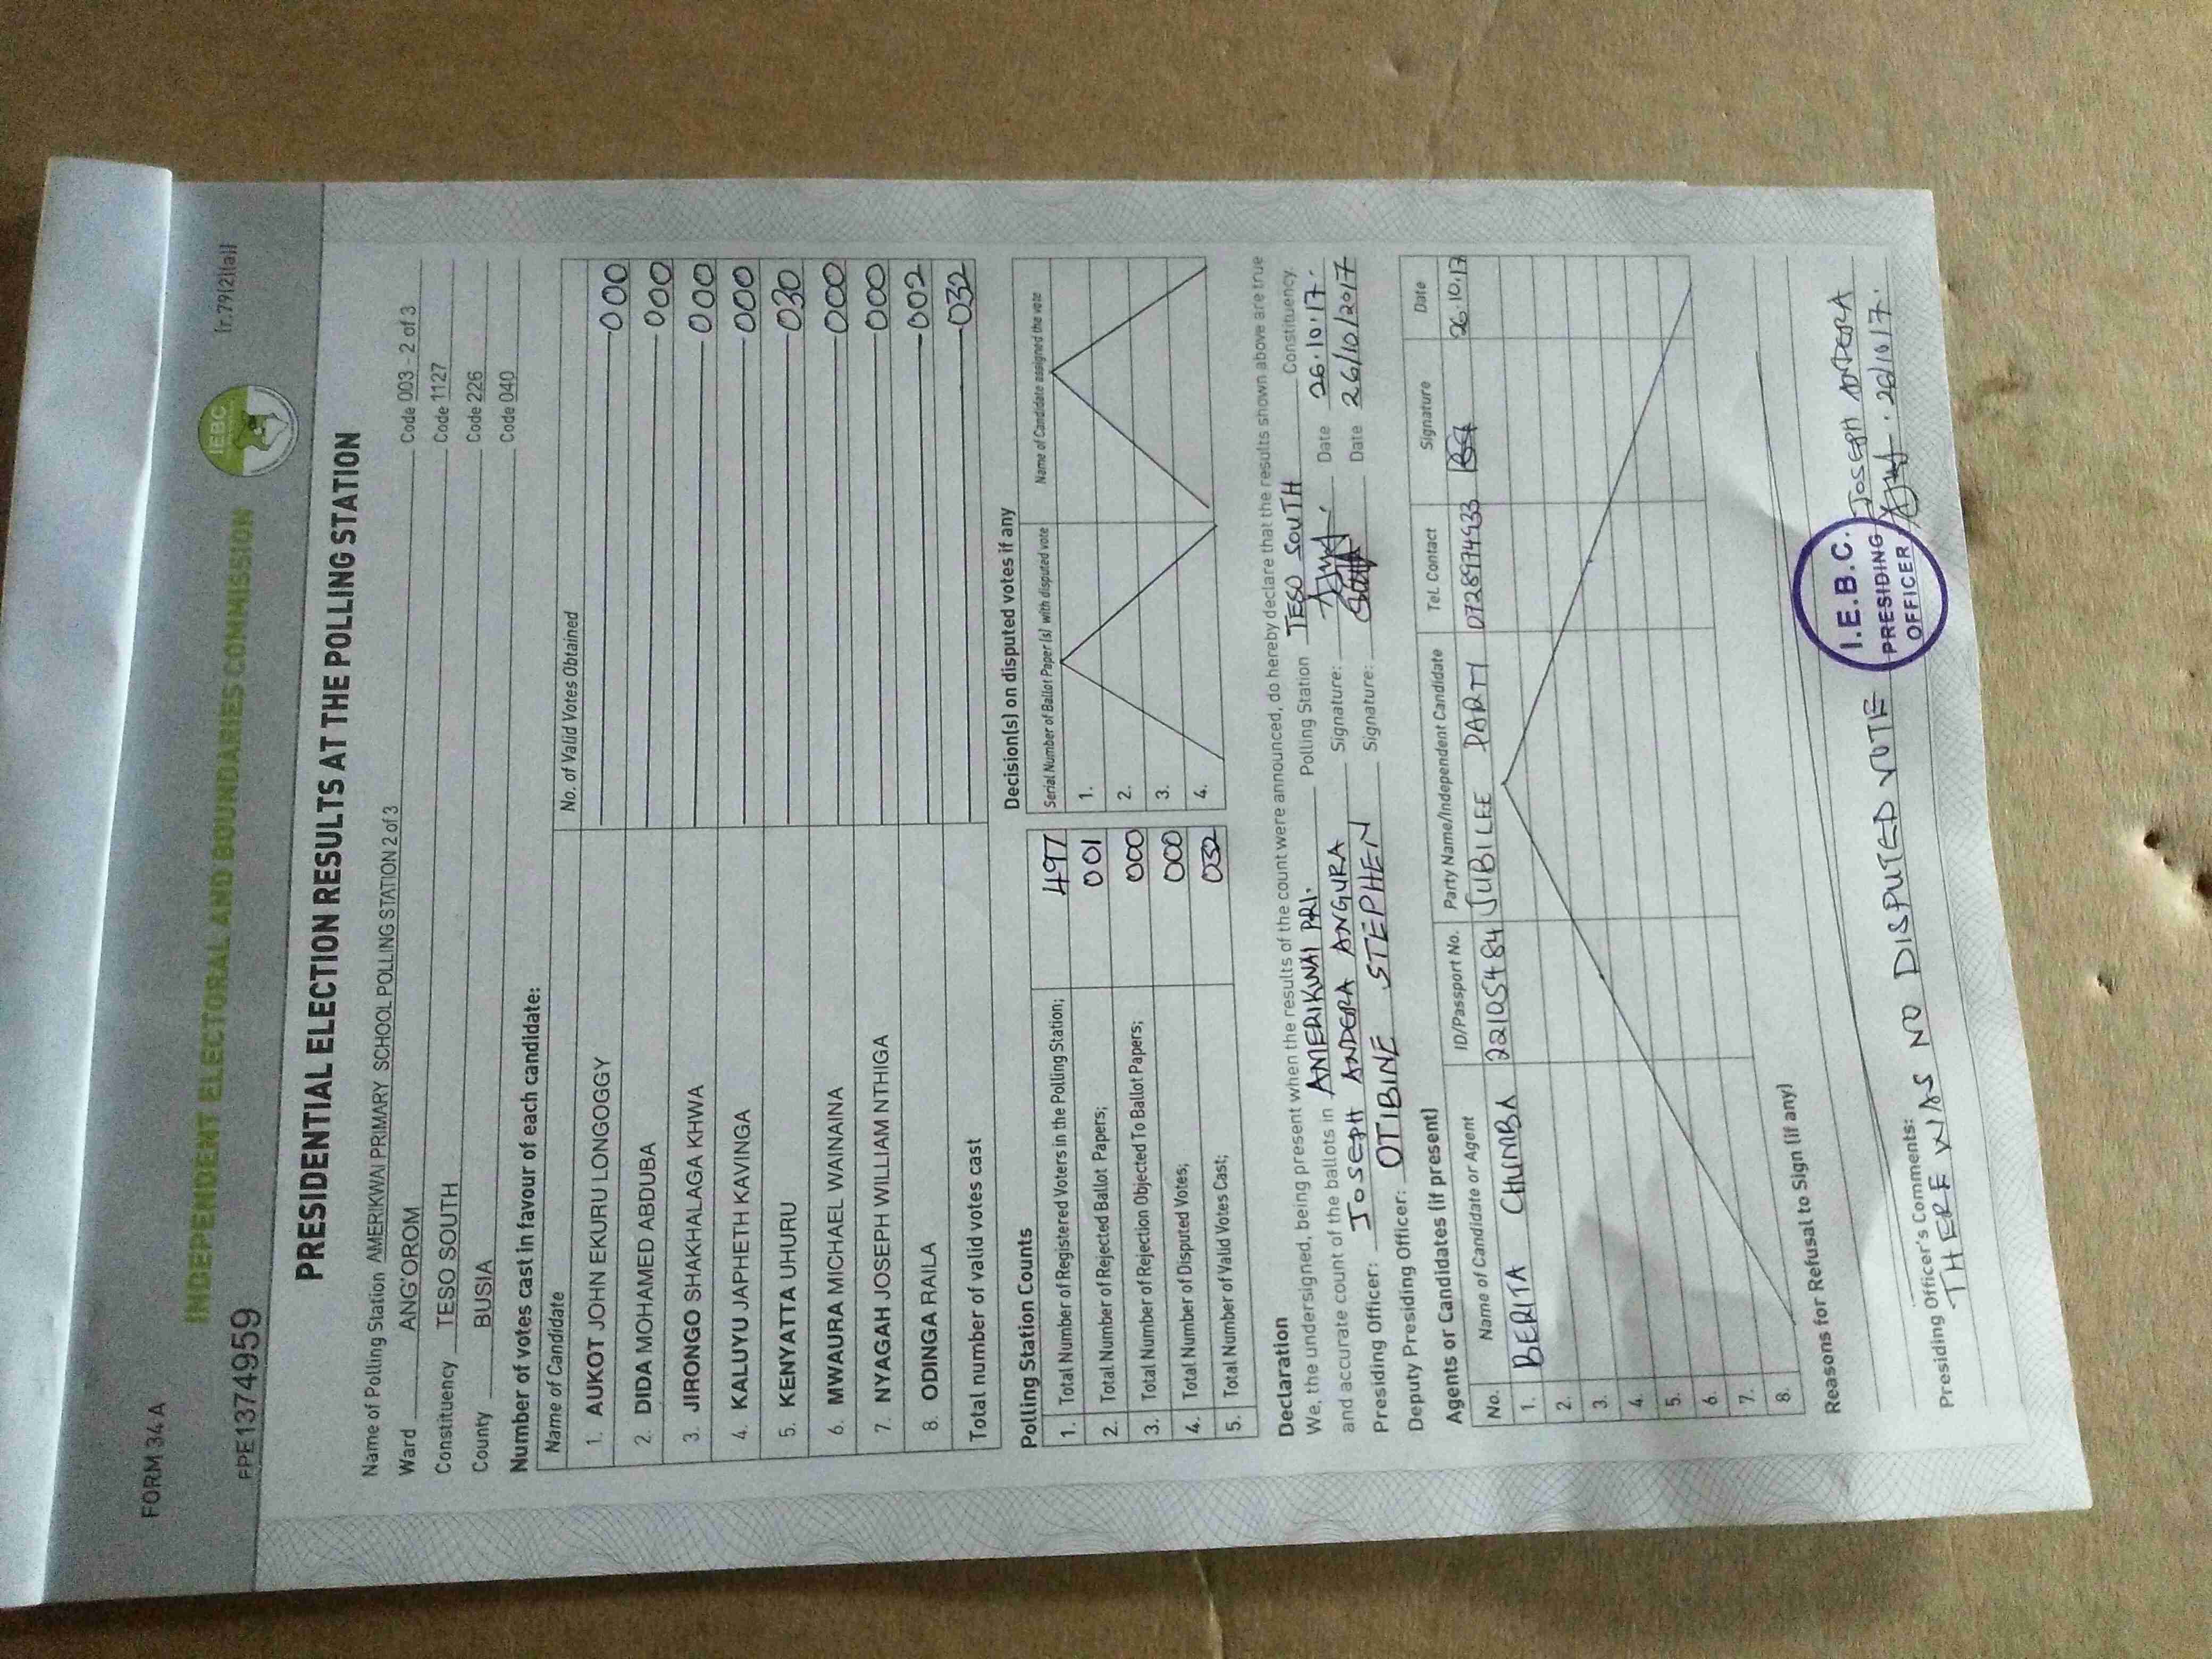 FORM 34 A
INDEPENDENT ELECTORAL AND BOUNDARIES COMMISSION
IEBC
(r.79(2)(a))
PPE1374959
PRESIDENTIAL ELECTION RESULTS AT THE POLLING STATION
Name of Polling Station AMERIKWAI PRIMARY SCHOOL POLLING STATION 2 of 3 Code 003 - 2 of 3
Ward ANG'OROM Code 1127
Constituency TESO SOUTH Code 226
County BUSIA Code 040
Number of votes cast in favour of each candidate:
Name of Candidate No. of Valid Votes Obtained
1. AUKOT JOHN EKURU LONGOGGY 000
2. DIDA MOHAMED ABDUBA 000
3. JIRONGO SHAKHALAGA KHWA 000
4. KALUYU JAPHETH KAVINGA 000
5. KENYATTA UHURU 030
6. MWAURA MICHAEL WAINAINA 000
7. NYAGAH JOSEPH WILLIAM NTHIGA 000
8. ODINGA RAILA 002
Total number of valid votes cast 032
Polling Station Counts
1. Total Number of Registered Voters in the Polling Station; 497
2. Total Number of Rejected Ballot Papers; 001
3. Total Number of Rejection Objected To Ballot Papers; 000
4. Total Number of Disputed Votes; 000
5. Total Number of Valid Votes Cast; 032
Decision(s) on disputed votes if any
Serial Number of Ballot Paper (s) with disputed vote Name of Candidate assigned the vote
1.
2.
3.
4.
Declaration
We, the undersigned, being present when the results of the count were announced, do hereby declare that the results shown above are true
and accurate count of the ballots in AMERIKWAI PRI. Polling Station TESO SOUTH Constituency.
Presiding Officer: JOSEPH ANDERA ANGURA Signature: Date 26.10.17.
Deputy Presiding Officer: OTIBINE STEPHEN Signature: Date 26/10/2017
Agents or Candidates (if present)
No. Name of Candidate or Agent ID/Passport No. Party Name/Independent Candidate Tel. Contact Signature Date
1. BERITA CHUMBA 22105484 JUBILEE PARTY 0728974933 26.10.17
2.
3.
4.
5.
6.
7.
8.
Reasons for Refusal to Sign (if any)
Presiding Officer's Comments:
THERE WAS NO DISPUTED VOTE
I.E.B.C.
PRESIDING
OFFICER
JOSEPH ANDERA